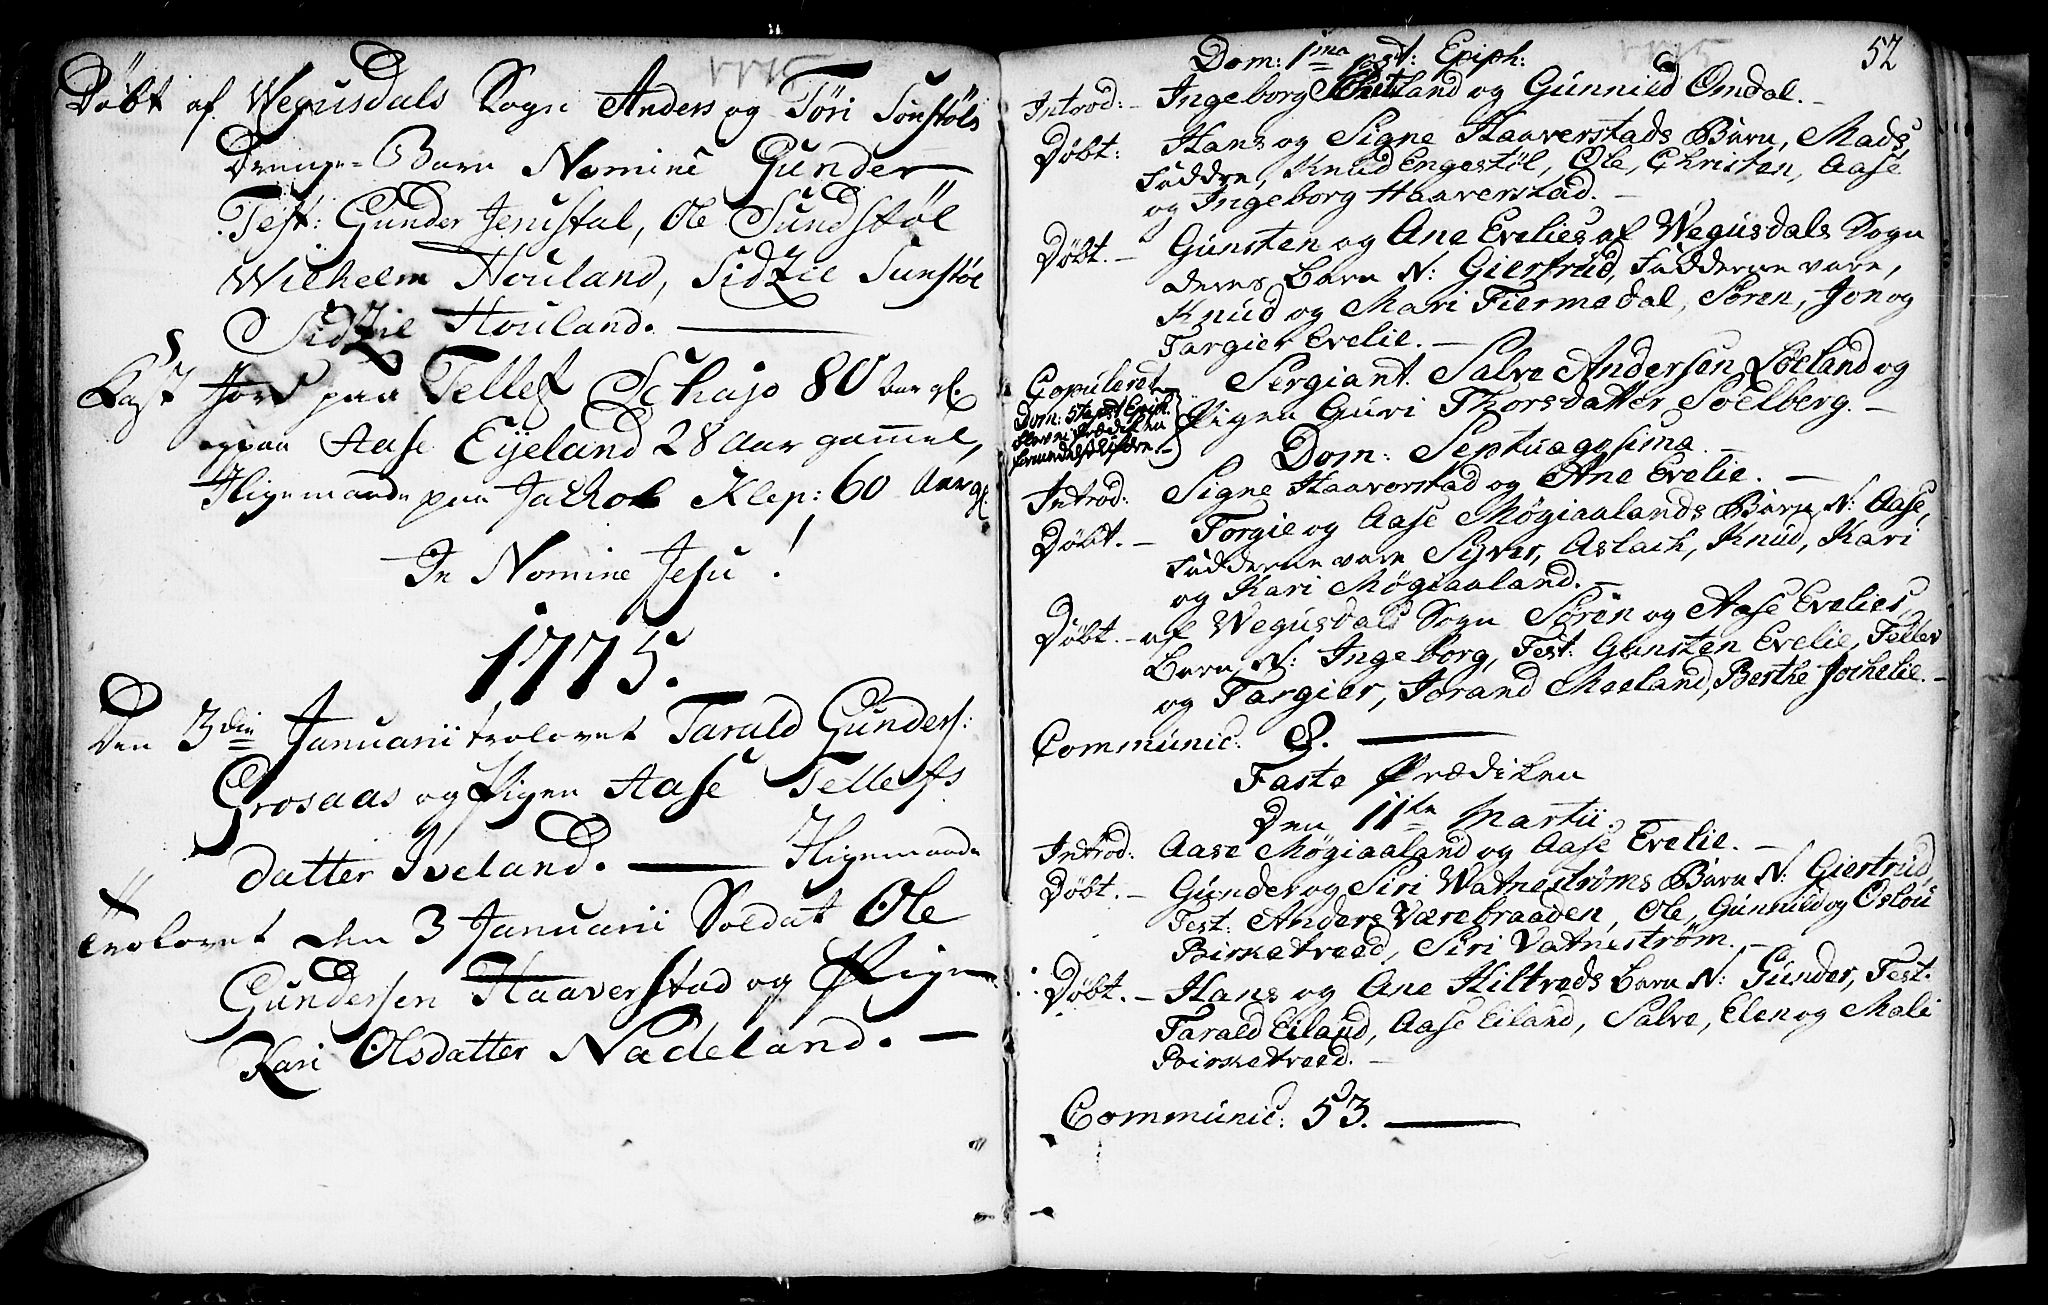 1775
Döbt af Wegusdals Sogn Anders og Töri Sunstöls
Drenge-Barn Nomine Gunder
Test: Gunder Jerustal, Ole Sundstøl
Wilhelm Houland, Sidzil Sunstöl
Sidzil Houland.
Kast Jord paa Tellef Schajo 80 Aar gl.
og paa Aase Eijeland 28 Aar gammel,
Iligemaade paa Jachob Klep: 60 Aar gl.
In Nomine Jesu!
1775.
Den 3die Januarii trolovet Tarald Gunders:
Grosaas og Pigen Aase Tellefs
datter Iveland. Iligemaade
trolovet den 3 Januarii Soldat Ole
Gundersen Haaverstad og Pigen
Kari Olsdatter Nadeland.
1775
52
Dom: 1ma post: Epiph:
Introd: Ingeborg land og Gunnild Omdal.
Døbt: Hans og Signe Haaverstads Barn, Mads,
Faddre, Knud Engestöl, Ole, Christen, Aase
og Ingeborg Haaverstad.
Døbt. Gunsten og Ane Evelies af Wegusdals Sogn
deres Barn N: Giertrud, Fadderne vare,
Knud og Mari Fiermedal, Søren, Jon og
Targier Evelie.
Copuleret Sergiant Salve Andersen Løeland og
Dom: 5ta post Epiph.
Pigen Guri Thorsdatter Soelberg.
Dom: Septuagesima
Introd: Signe Haaverstad og Ane Evelie.
Døbt. Torgie og Aase Møgiaalands Barn N: Aase,
Fadderne vare Syver, Aslach, Knud, Kari
og Kari Møgiaaland.
Døbt. af Wegusdals Sogn Søren og Aase Evelies
Barn N: Ingeborg, Test: Gunsten Evelie, Tellev
og Targier, Jorand Moeland, Berthe Jochelie.
Communic: 8.
Faste Prædiken
Den 11te Martii.
Introd: Aase Møgiaaland og Aase Evelie.
Døbt. Gunder og Siri Watnestrøms Barn N: Giertrud,
Test: Anders Værebraaden, Ole, Gunnild og Oslou
Birketveed, Siri Vatnestrøm.
Døbt. Hans og Ane Hiltveds Barn N: Gunder, Test:
Tarald Eiland, Aase Eiland, Salve, Elen og Mali
Birketveed.
Communic: 53.